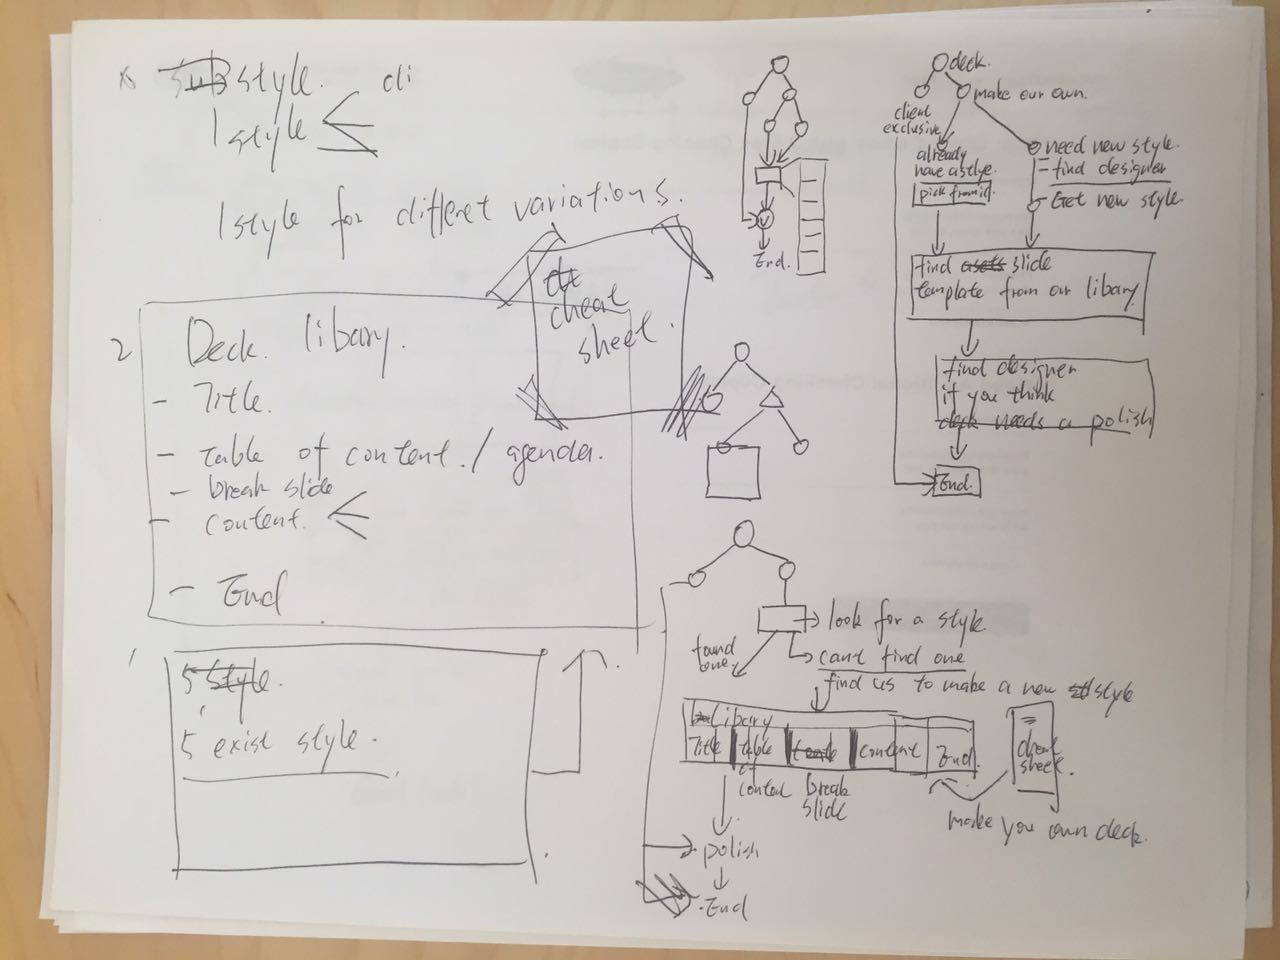 style. cli
1 style
1 style for differet variations.
cheat
sheet.
2
Deck libary.
- Title.
- table of content. / agenda.
- break slide
- content.
- End
1
5 style.
5 exist style.
End.
deck.
make our own.
client
exclusive
already
have astlye.
pick from it.
need new style.
= find designer
Get new style.
find assets slide
template from our libary.
find designer
if you think
deck needs a polish
End.
look for a style.
found
one
cant find one
find us to make a new style
Libary
Title table content End.
of
content break
slide
cheat
sheet.
make you own deck.
polish
End